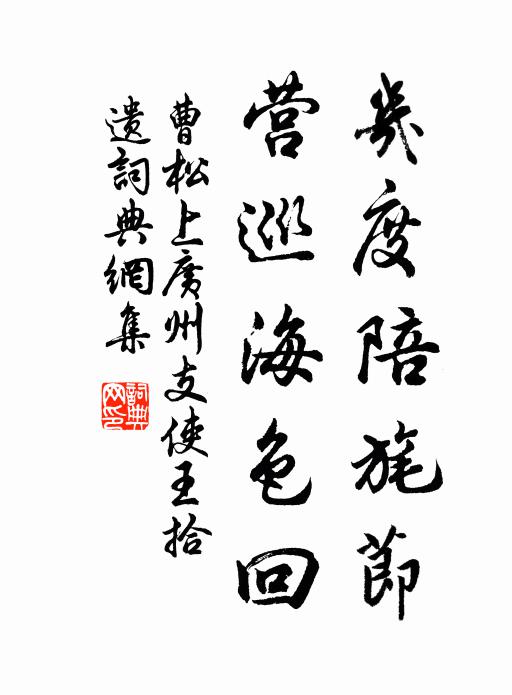 幾度陪旄節
营巡海色回
曹松上廣州支使王拾
遺詞典網集
詞典网印